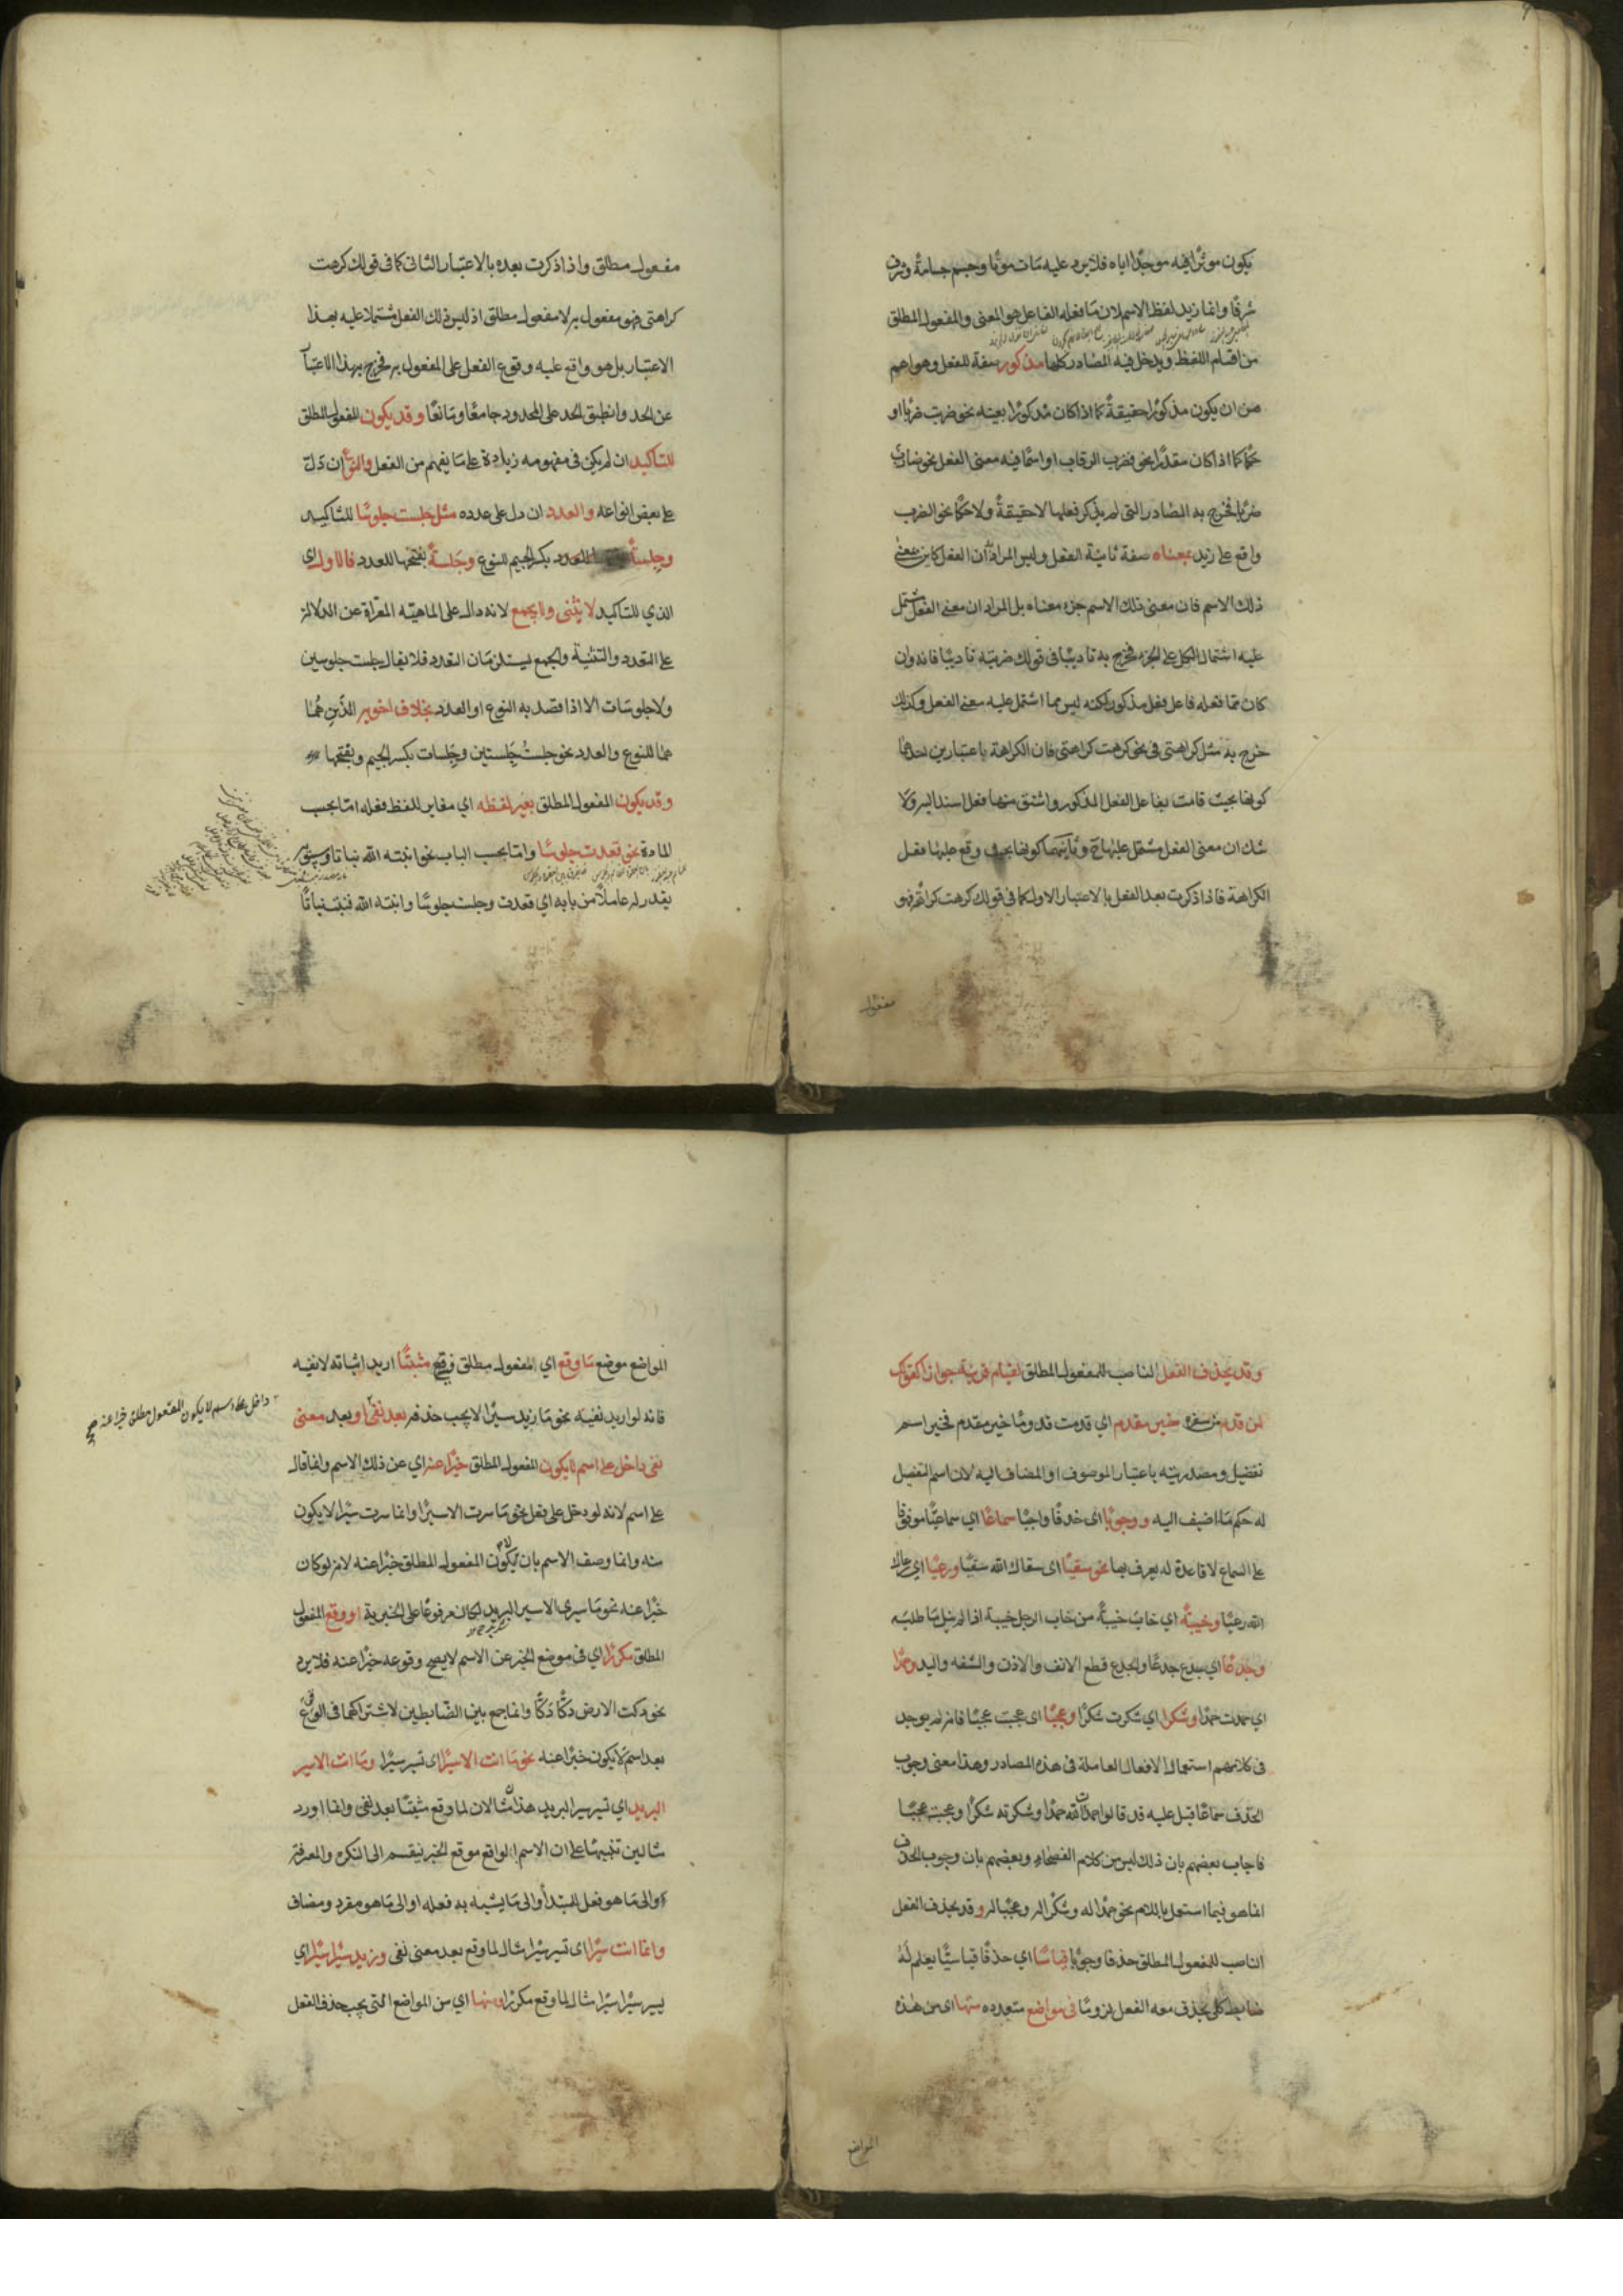 يكون موثرا فيه موجدا اياه فلا يرد عليه مات موتا وجسم جسامة وشرف
شرفا وانما زيد لفظ الاسم لان ما فعله الفاعل هو المعنى والمفعول المطلق
من اقسام اللفظ ويدخل فيه المصادر كلها مذكور صفة للفعل وهو اعم
من ان يكون مذكورا حقيقة كما اذا كان مذكورا بعينه نحو ضربت ضربا او
حكما كما اذا كان مقدرا نحو فضرب الرقاب او اسما فيه معنى الفعل نحو ضارب
ضربا فخرج به المصادر التي لم يذكر فعلها لا حقيقة ولا حكما نحو الضرب
واقع على زيد بمعناه صفة ثانية للفعل وليس المراد ان الفعل كاين بمعنى
ذلك الاسم فان معنى ذلك الاسم جزء معناه بل المراد ان معنى الفعل مشتمل
عليه اشتمال الكل على الجزء فخرج به تاديبا في قولك ضربته تاديبا فانه وان
كان مما فعله فاعل فعل مذكور لكنه ليس مما اشتمل عليه معنى الفعل وكذلك
خرج به مثل كراهتي في نحو كرهت كراهتي فان الكراهة باعتبارين احدهما
كونها بحيث قامت بفاعل الفعل المذكور واشتق منها فعل اسند اليه ولا
شك ان معنى الفعل مشتمل عليها ح وثانيهما كونها بحيث وقع عليها فعل
الكراهة فاذا ذكرت بعد الفعل بالاعتبار الاول كما في قولك كرهت كراهة فهو
مفعول
مفعول مطلق واذا ذكرت بعده بالاعتبار الثاني كما في قولك كرهت
كراهتي فهو مفعول به لا مفعول مطلق اذ ليس ذلك الفعل مشتملا عليه بهذا
الاعتبار بل هو واقع عليه وقوع الفعل على المفعول به فخرج بهذا الاعتبار
عن الحد وانطبق الحد على المحدود جامعا ومانعا وقد يكون المفعول المطلق
للتاكيد ان لم يكن في مفهومه زيادة على ما يفهم من الفعل والنوع ان دل
على بعض انواعه والعدد ان دل على عدده مثل جلست جلوسا للتاكيد
وجلسة بكسر الجيم للنوع وجلسة بفتحها للعدد فالاول اي
الذي للتاكيد لا يثنى ولا يجمع لانه دال على الماهية المعراة عن الدلالة
على التعدد والتثنية والجمع يستلزمان التعدد فلا يقال جلست جلوسين
ولا جلوسات الا اذا قصد به النوع او العدد بخلاف اخويه الذين هما
هما للنوع والعدد نحو جلست جلستين وجلسات بكسر الجيم وبفتحها
وقد يكون المفعول المطلق بغير لفظه اي مغاير للفظ فعله اما بحسب
المادة نحو قعدت جلوسا واما بحسب الباب نحو انبته الله نباتا وسيبويه
يقدر له عاملا من بابه اي قعدت وجلست جلوسا وانبته الله فنبت نباتا
وقد يحذف الفعل الناصب للمفعول المطلق لقيام قرينة جوازا كقولك
لمن قدم من سفره خير مقدم اي قدمت قدوما خير مقدم فخير اسم
تفضيل ومصدريته باعتبار الموصوف او المضاف اليه لان اسم التفضيل
له حكم ما اضيف اليه ووجوبا اي حذفا واجبا سماعا اي سماعيا موقوفا
على السماع لا قاعدة له يعرف بها نحو سقيا اي سقاك الله سقيا ورعيا اي رعاك
الله رعيا وخيبة اي خاب خيبة من خاب الرجل خيبة اذا لم ينل ما طلبه
وجدعا اي جدع جدعا والجدع قطع الانف والاذن والشفه واليد وحمدا
اي حمدت حمدا وشكرا اي شكرت شكرا وعجبا اي عجبت عجبا فانه لم يوجد
في كلامهم استعمال الافعال العاملة في هذه المصادر وهذا معنى وجوب
الحذف سماعا قيل عليه قد قالوا حمدت الله حمدا وشكرته شكرا وعجبت عجبا
فاجاب بعضهم بان ذلك ليس من كلام الفصحاء وبعضهم بان وجوب الحذف
انما هو فيما استعمل باللام نحو حمدا له وشكرا له وعجبا له وقد يحذف الفعل
الناصب للمفعول المطلق حذفا وجوبا قياسا اي حذفا قياسيا يعلم له
ضابط كلي يحذف معه الفعل لزوما في مواضع متعددة منها اي من هذه
المواضع
المواضع موضع ما وقع اي المفعول مطلق وقع مثبتا اريد اثباته لا نفيه
فانه لو اريد نفيه نحو ما زيد سيرا لا يجب حذفه بعد نفي او بعد معنى
داخل على اسم لا يكون المفعول مطلق خبرا عنه صح
نفي داخل على اسم لا يكون المفعول المطلق خبرا عنه اي عن ذلك الاسم وانما قال
على اسم لانه لو دخل على فعل نحو ما سرت الا سيرا وانما سرت سيرا لا يكون
منه وانما وصف الاسم بان لا يكون المفعول المطلق خبرا عنه لانه لو كان
خبرا عنه نحو ما سيري الا سير البريد لكان مرفوعا على الخبرية او وقع المفعول
المطلق مكررا اي في موضع الخبر عن الاسم لا يصح وقوعه خبرا عنه فلا يرد
نحو دكت الارض دكا دكا وانما جمع بين الضابطين لاشتراكهما في الوقوع
بعد اسم لا يكون خبرا عنه نحو ما انت الا سيرا اي تسير سيرا وما انت الا سير
البريد اي تسير سير البريد هذان مثالان لما وقع مثبتا بعد نفي وانما اورد
مثالين تنبيها على ان الاسم الواقع موقع الخبر ينقسم الى النكره والمعرفة
والى ما هو فعل للمبتدأ والى ما يشبه به فعله او الى ما هو مفرد ومضاف
وانما انت سيرا اي تسير سيرا مثال لما وقع بعد معنى نفي وزيد سيرا سيرا اي
يسير سيرا سيرا مثال لما وقع مكررا ومنها اي من المواضع التي يجب حذف الفعل